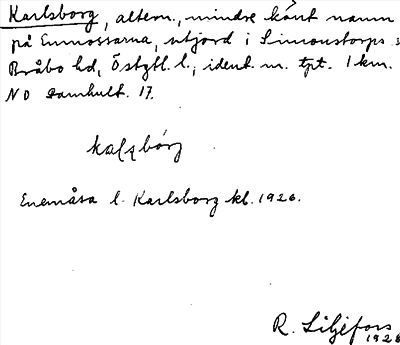 Karlsborg, altern., mindre känt namn
på Enmossarna, utjord i Simonstorps s
Bråbo hd, Östgtl. l., ident. m. tpt. 1 km.
NO Damhult. 17.
kaļʂbórj
Enemåsa l. Karlsborg kl. 1926.
R. Liljefors
1926